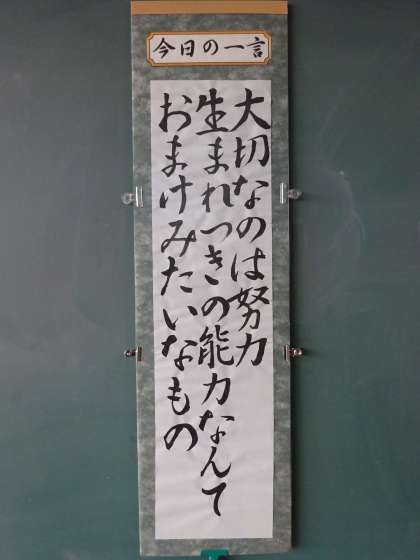 今日の一言
大切なのは努力
生まれつきの能力なんて
おまけみたいなもの